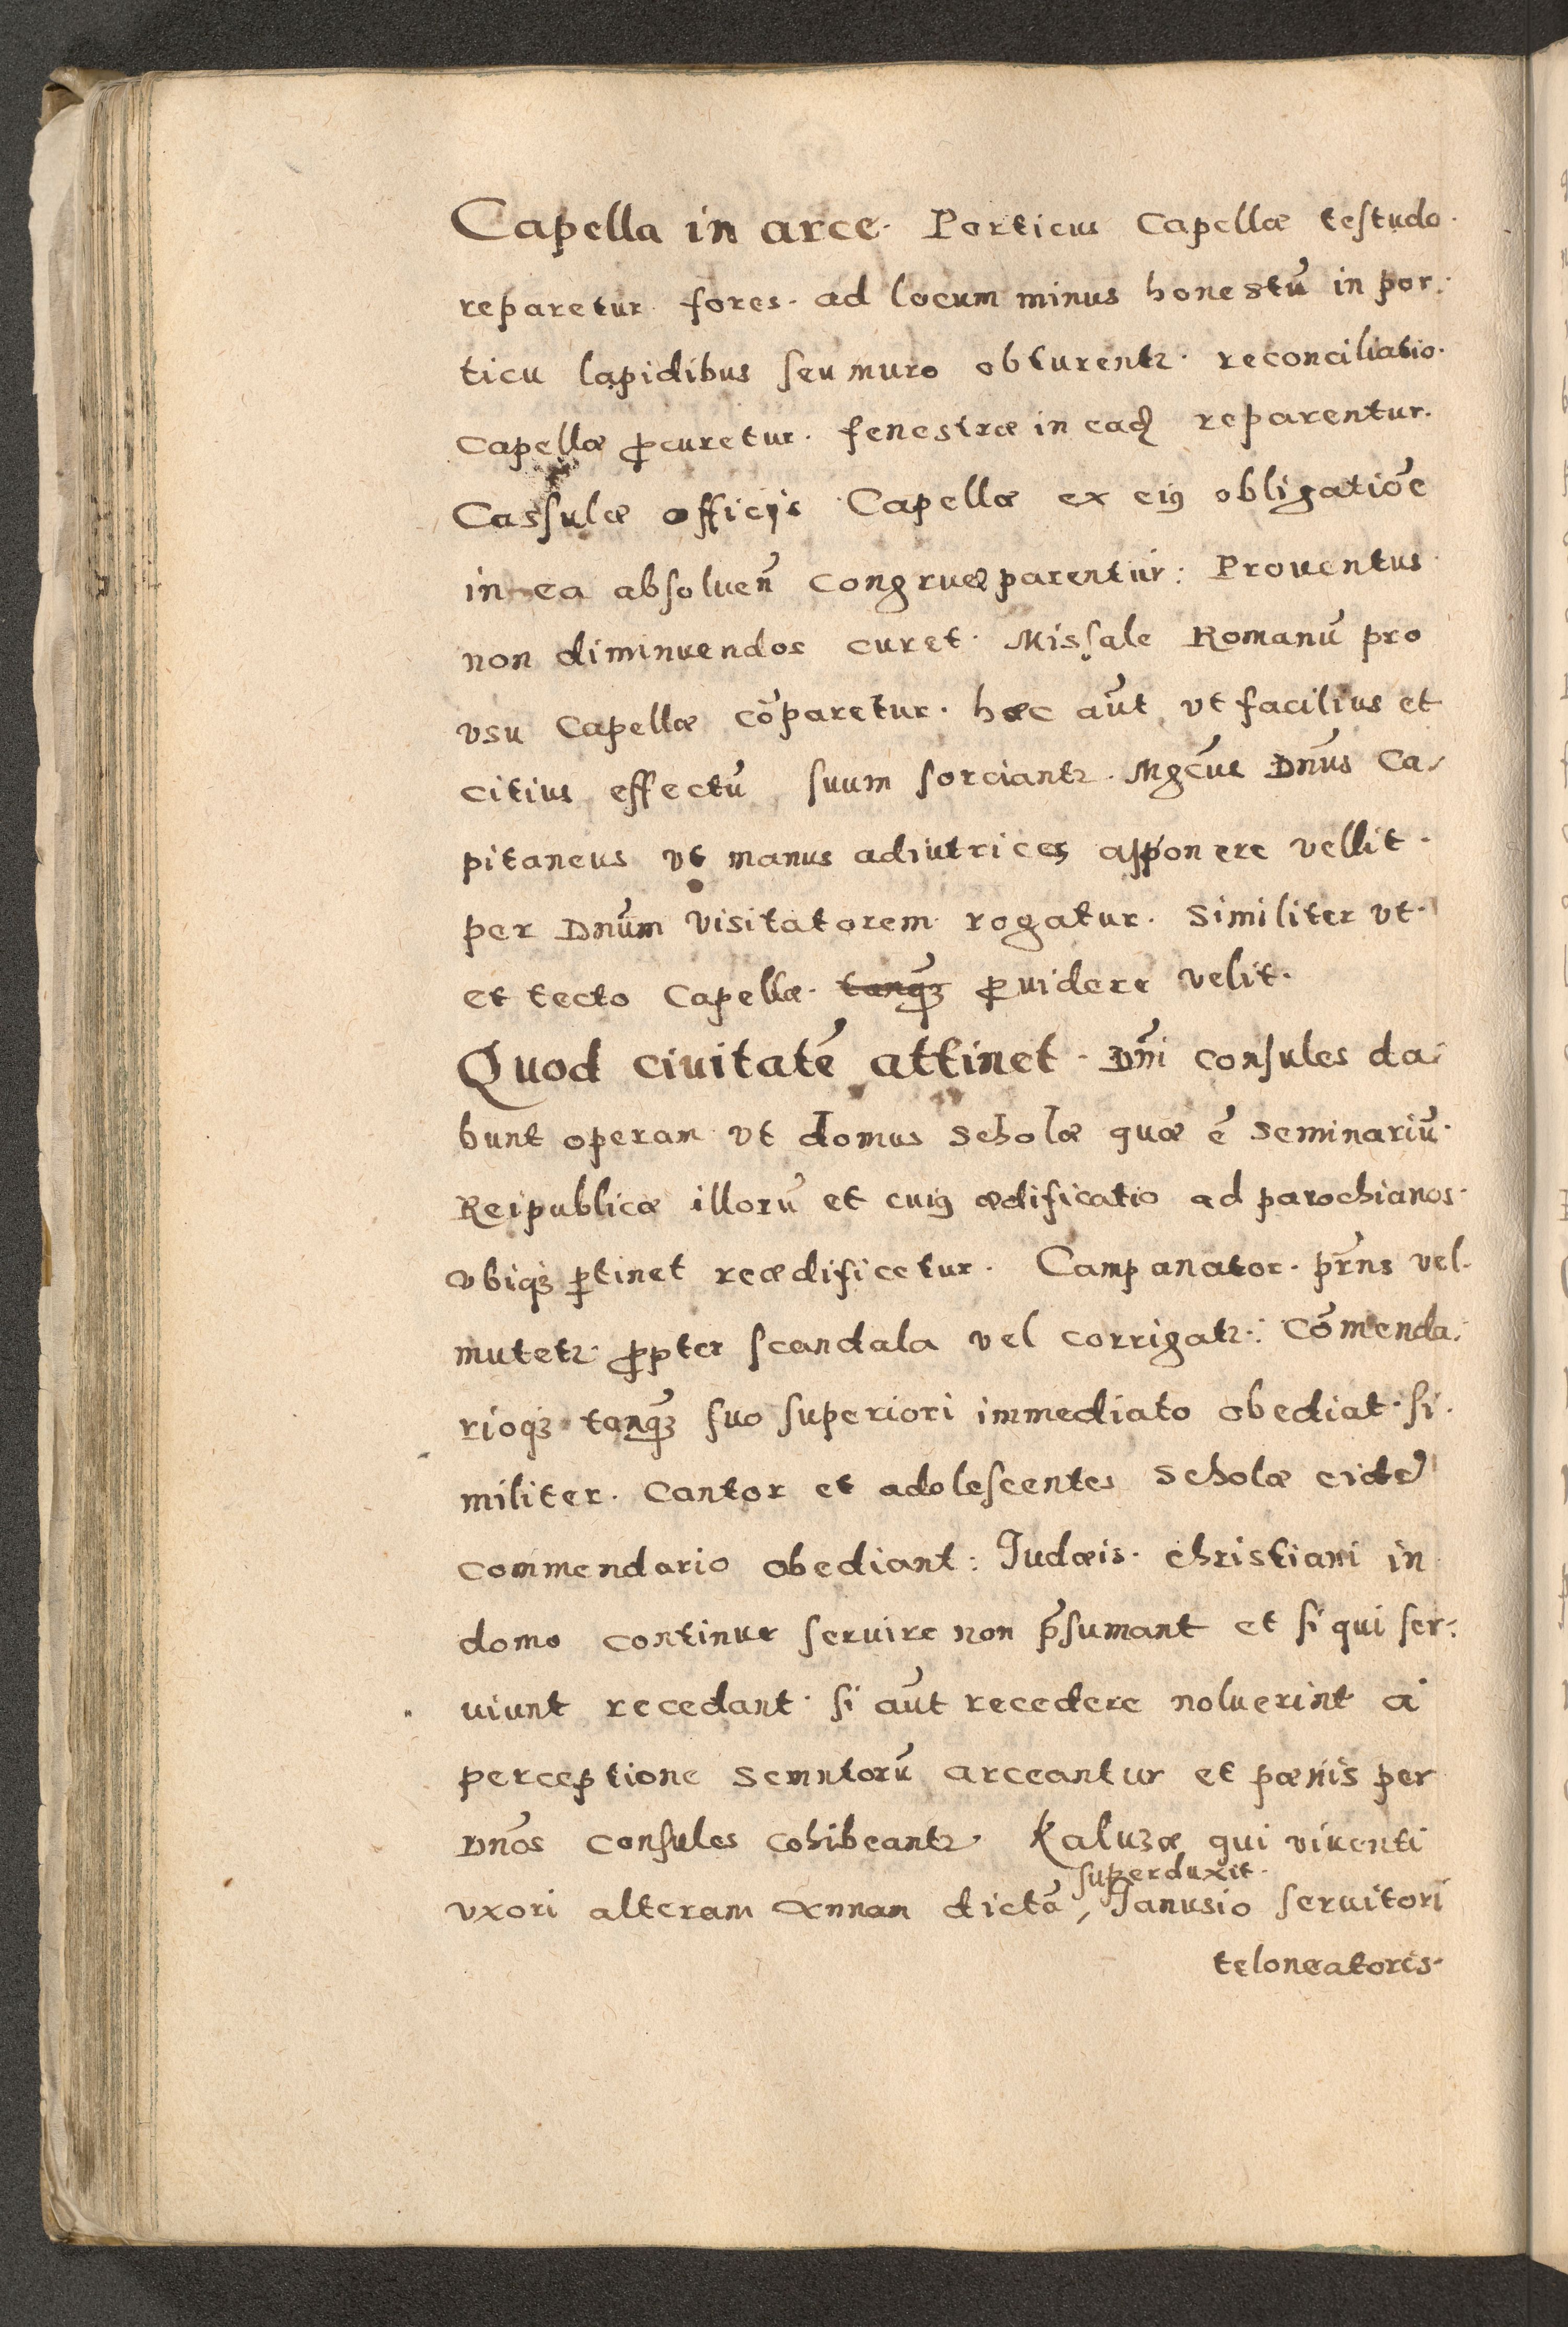 Capella in arce. Porticus Capellæ testudo.
reparetur fores. ad locum minus honestū in por:
ticu lapidibus seu muro obturentr. reconciliatio.
Capellæ ꝓcuretur. fenestræ in eadꝫ reparentur.
Cassulæ officijs Capellæ ex eiꝰ obligatiōe
in ea absoluen̄ congruæ parentur: Prouentus
non diminuendos curet. Missale Romanū pro
vsu Capellæ cōparetur. hæc aūt vt facilius et
citius effectū suum sorciantr. Mgc̄us Dn̄us Ca-
pitaneus vt manus adiutrices apponere vellit.
per Dnūm Visitatorem rogatur. Similiter vt.
et tecto Capellæ. tanq̄ꝫ ꝓuidere velit.
Quod ciuitatē attinet. Dn̄i consules da:
bunt operam vt domus Scholæ quæ ē Seminariū.
Reipublicæ illorū et cuiꝰ ædificatio ad parochianos.
vbiqꝫ ꝑtinet reædificetur. Campanator. pr̄ns vel.
mutetr ꝓpter scandala vel corrigatr: Cōmenda:
rioqꝫ tanq̄ꝫ suo superiori immediato obediat. si.
militer. Cantor et adolescentes Scholæ eidē
commendario obediant: Iudæis. christiani in
domo continue seruire non p̄sumant et si qui ser:
uiunt recedant. si aūt recedere noluerint a
perceptione Semntorū arceantur et pœnis per
Dnōs Consules cohibeantr Kaluzæ qui viuenti
superduxit.
vxori alteram Annan dictā, Ianusio seruitori
teloneatoris.